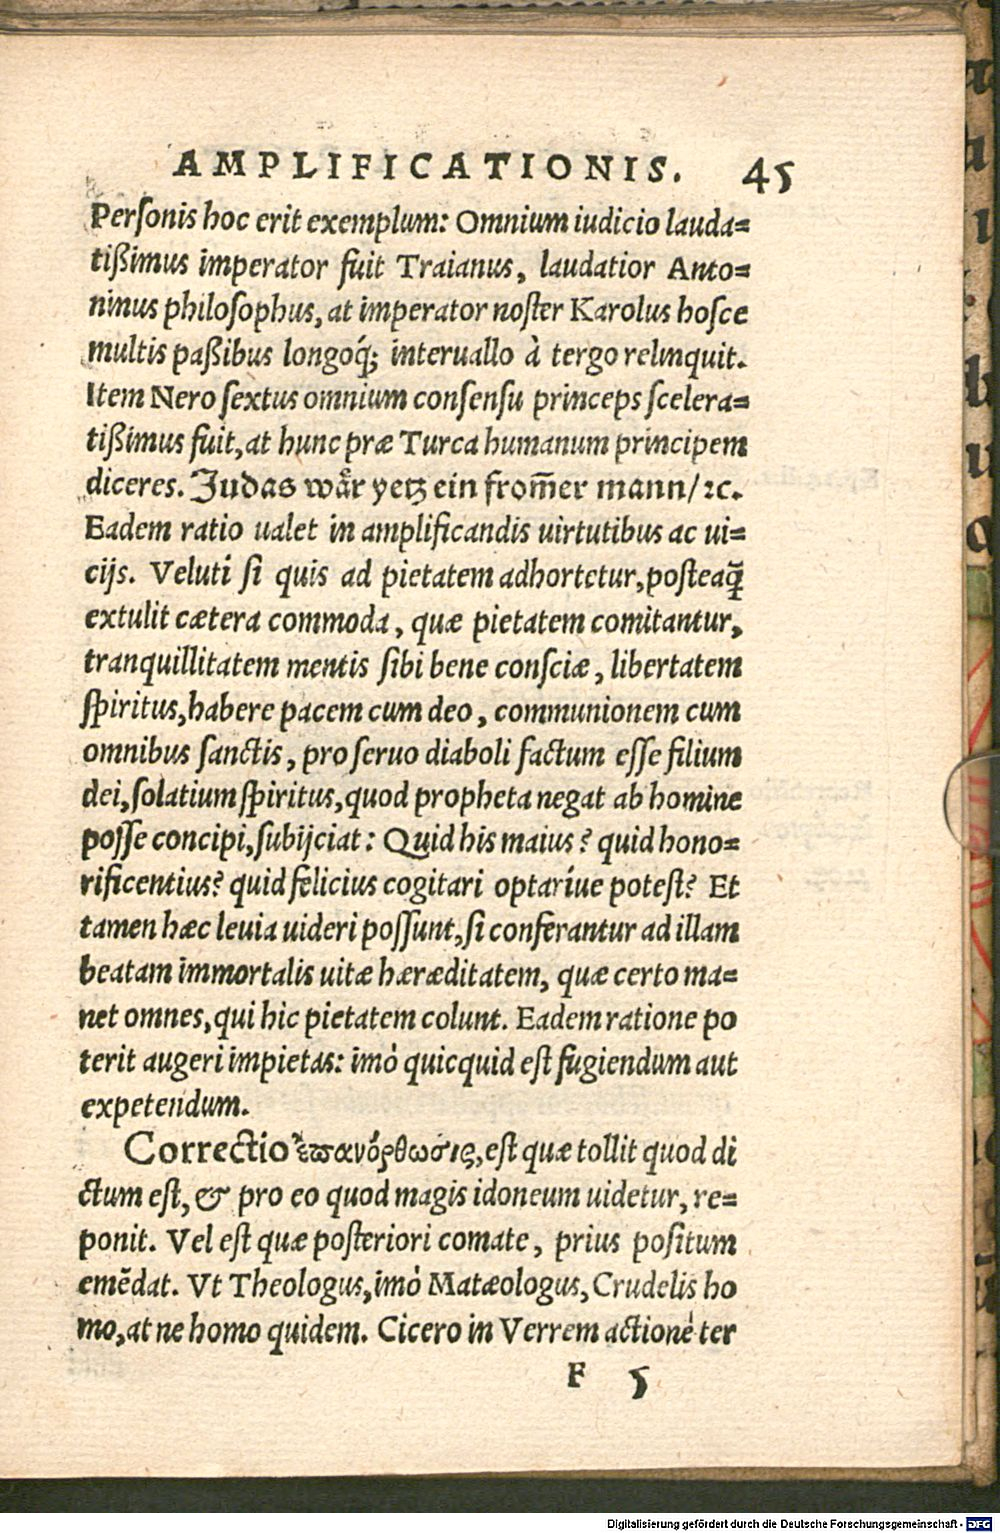 AMPLIFICATIONIS. 45
Personis hoc erit exemplum: Omnium iudicio lauda=
tißimus imperator fuit Traianus, laudatior Anto=
ninus philosophus, at imperator noster Karolus hosce
multis paßibus longoq́; interuallo à tergo relinquit.
Item Nero sextus omnium consensu princeps scelera=
tißimus fuit, at hunc præ Turca humanum principem
diceres. Judas wår yetz ein from̄er mann/ ꝛc.
Eadem ratio ualet in amplificandis uirtutibus ac ui=
cijs. Veluti si quis ad pietatem adhortetur, posteaq̃
extulit cætera commoda, quæ pietatem comitantur,
tranquillitatem mentis sibi bene consciæ, libertatem
spiritus, habere pacem cum deo, communionem cum
omnibus sanctis, pro seruo diaboli factum esse filium
dei, solatium spiritus, quod propheta negat ab homine
posse concipi, subijciat: Quid his maius? quid hono=
rificentius? quid felicius cogitari optaríue potest? Et
tamen hæc leuia uideri possunt, si conferantur ad illam
beatam immortalis uitæ hæræditatem, quæ certo ma=
net omnes, qui hic pietatem colunt. Eadem ratione po
terit augeri impietas: imò quicquid est fugiendum aut
expetendum.
Correctio ἐπανόρθωσις, est quæ tollit quod di
ctum est, & pro eo quod magis idoneum uidetur, re=
ponit. Vel est quæ posteriori comate, prius positum
emēdat. Vt Theologus, imò Matæologus, Crudelis ho
mo, at ne homo quidem. Cicero in Verrem actionē ter
F 5
Digitalisierung gefördert durch die Deutsche Forschungsgemeinschaft - DFG